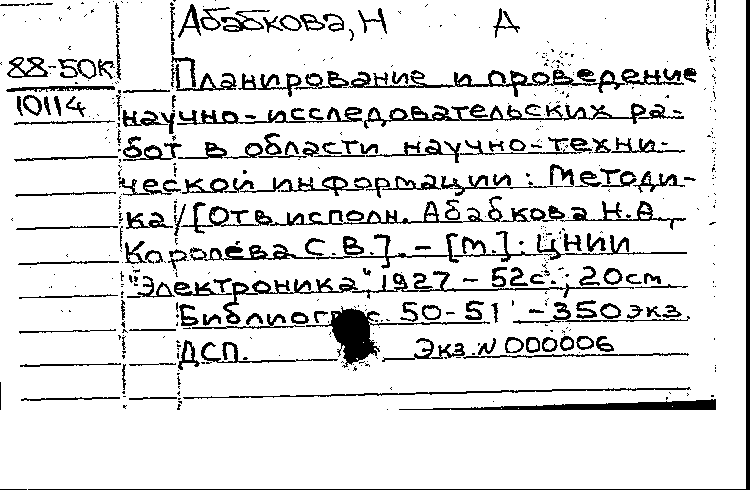 Абабкова, Н А
88-50к Планирование и проведение
10114 научно-исследовательских ра-
бот в области научно-техни-
ческой информации: Методи-
ка/[Отв. исполн. Абабкова Н.А.,
Королева С.В.]. - [М.]: ЦНИИ
"Электроника", 1927 - 52с.; 20см.
с. 50-51 - 350 экз.
ДСП. Экз. N 000006